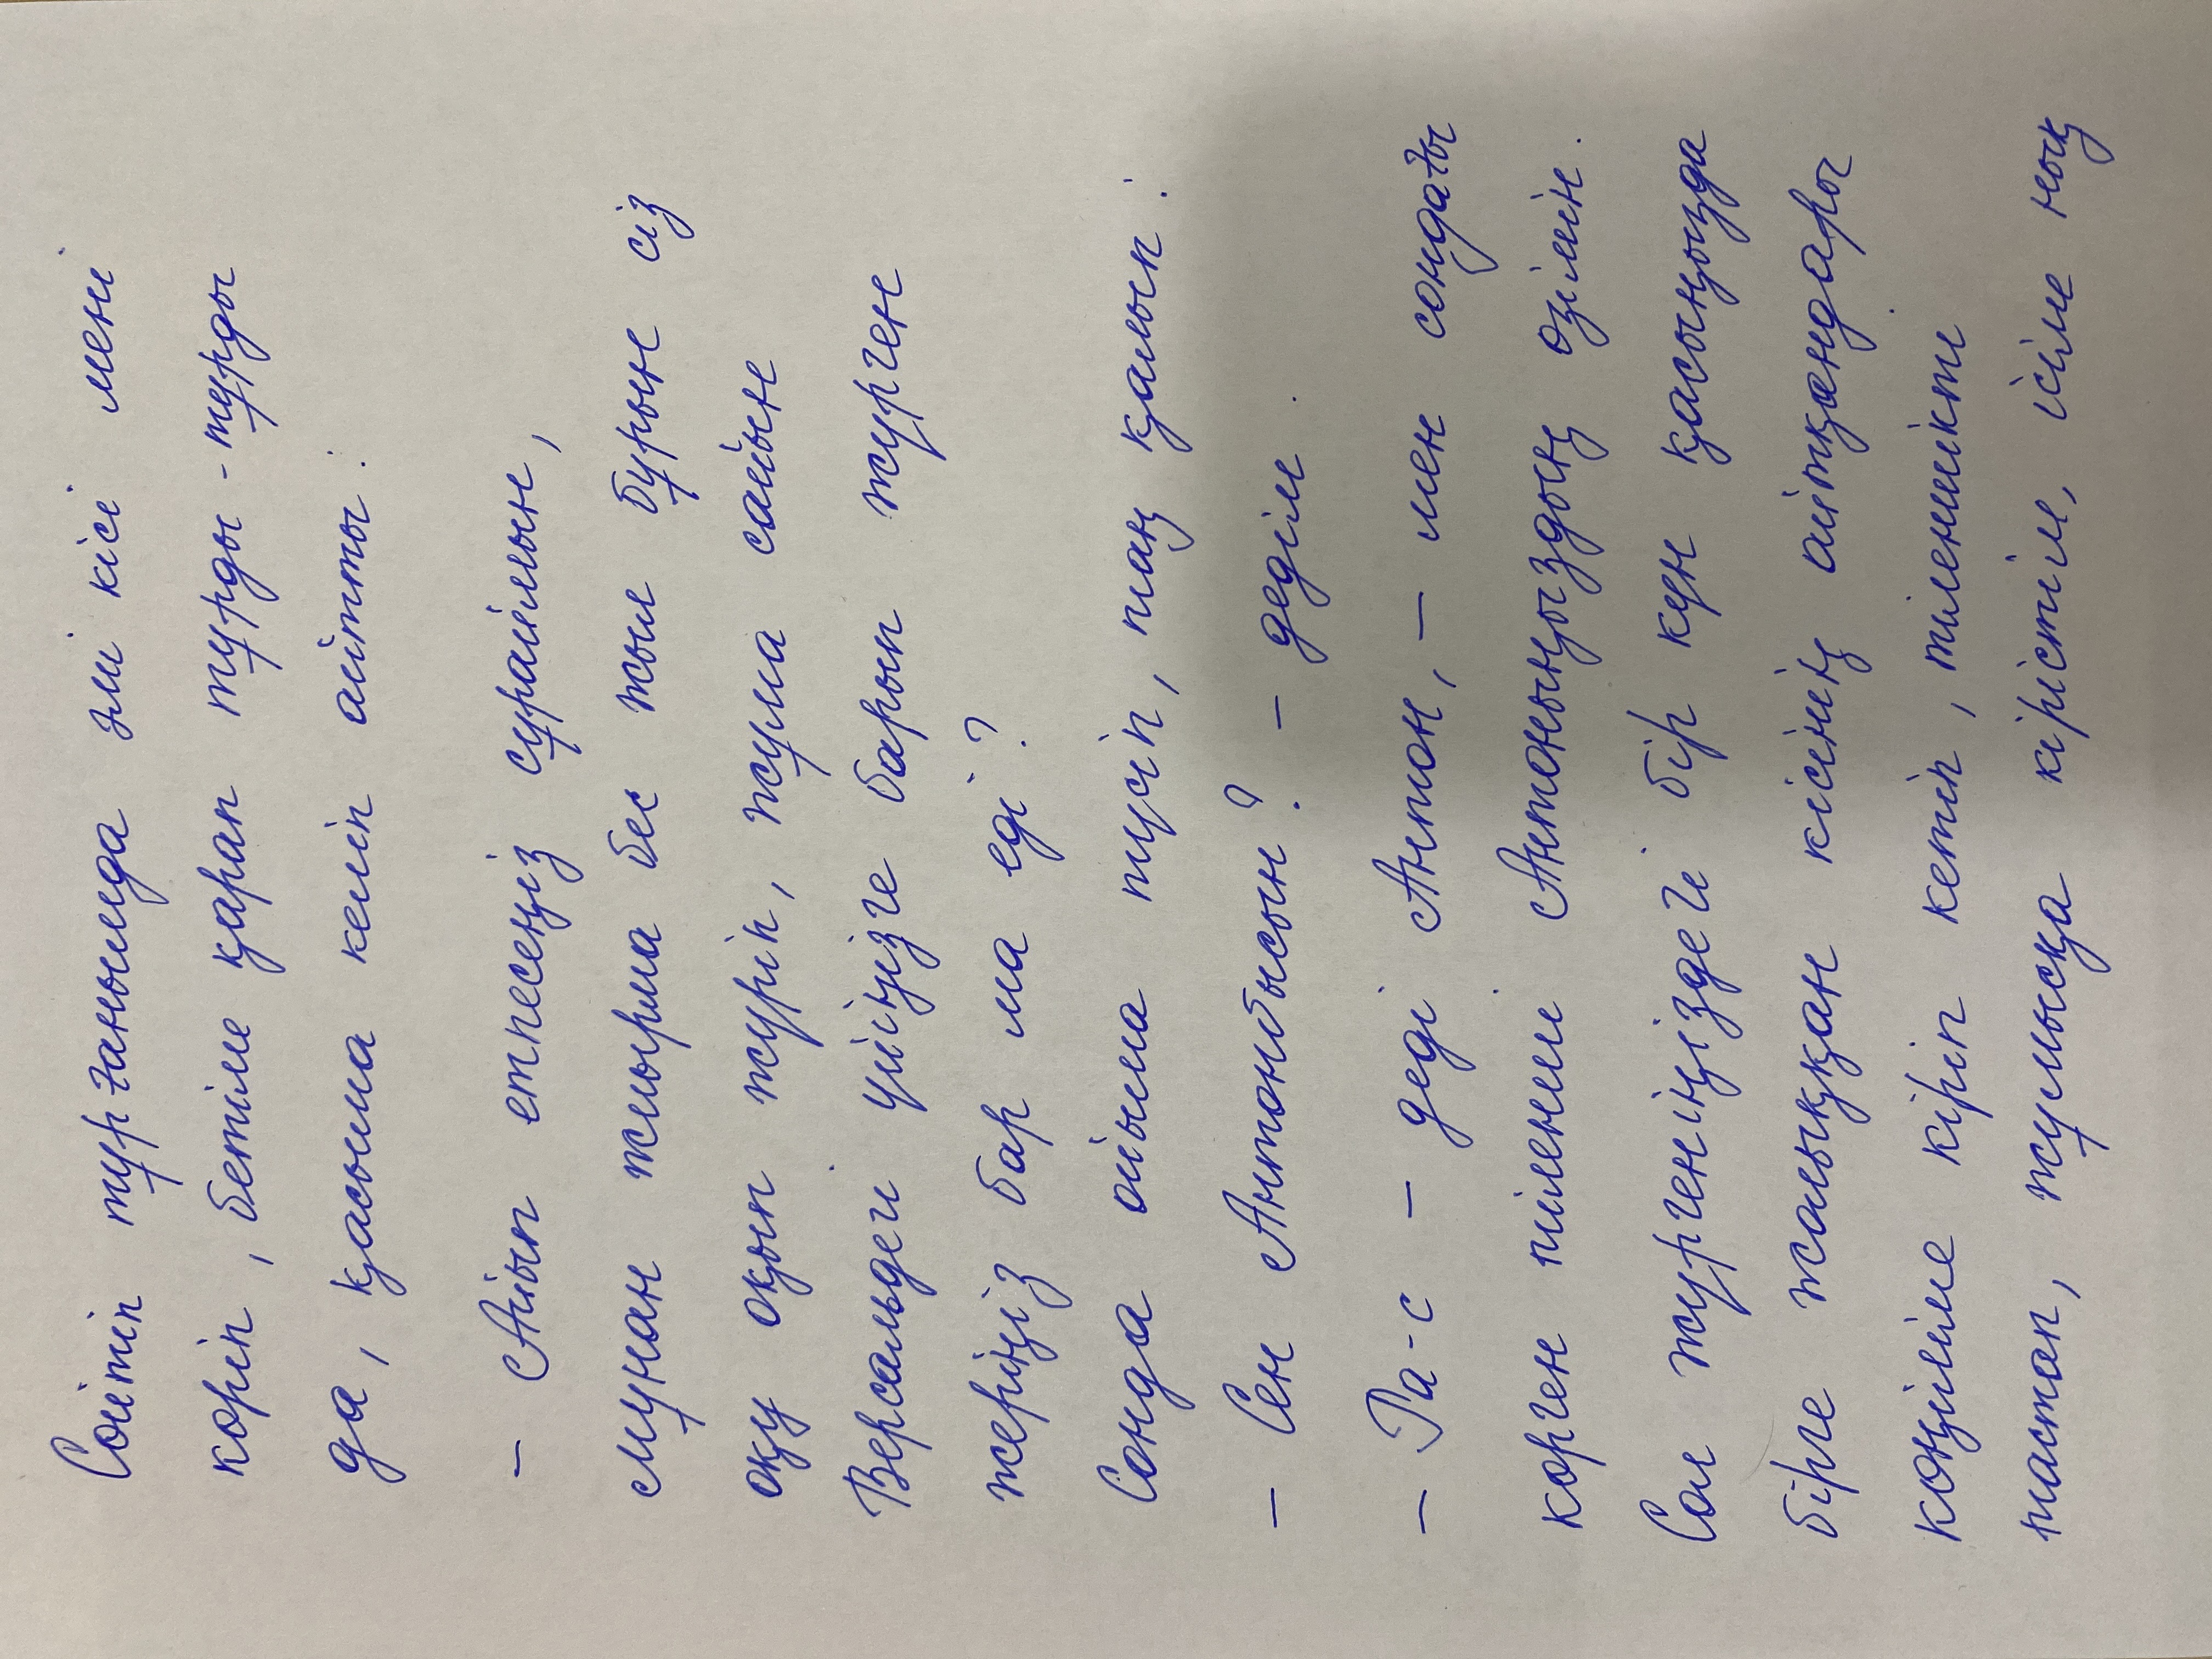 Сөйтіп тұрғанымда әлгі кісі мені
көріп, бетіме қарап тұрды - тұрды
да, қасыма келіп айтты:
– Айып етпесеңіз сұраймын,
мұнан жиырма бес жыл бұрын сіз
оқу оқып жүріп, жұма сайын
Версальдегі үйіңізге барып жүрген
жеріңіз бар ма еді?
Сонда ойыма түсіп, таң қалып:
– Сен Антонбысын? – дедім.
– Ра-с – деді Антон, – мен сондағы
көрген тіленші Антоныңыздың өзімін.
Сол жүргеніңіздегі бір күн қасыңызда
бірге жолыққан кісінің айтқандары
көңіліме кіріп кетіп, тіленшікті
тастап, жұмысқа кірістім, ісіме нық